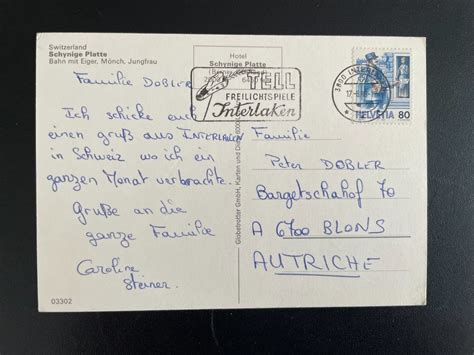 Switzerland
Schynige Platte
Bahn mit Eiger, Mönch, Jungfrau
Hotel
Schynige Platte
TELL
FREILICHTSPIELE
Interlaken
3800 INTERLAKEN
HELVETIA 80
Familie DOBLER
Ich schicke euch
einen gruß aus INTERLAKEN
in Schweiz wo ich ein
ganzen Monat verbrachte.
Gruße an die
ganze Familie
Caroline
Steiner.
03302
Globetrotter GmbH, Karten und Dias
Familie
Peter DOBLER
Bargetschahof 70
A 6700 BLONS
AUTRICHE